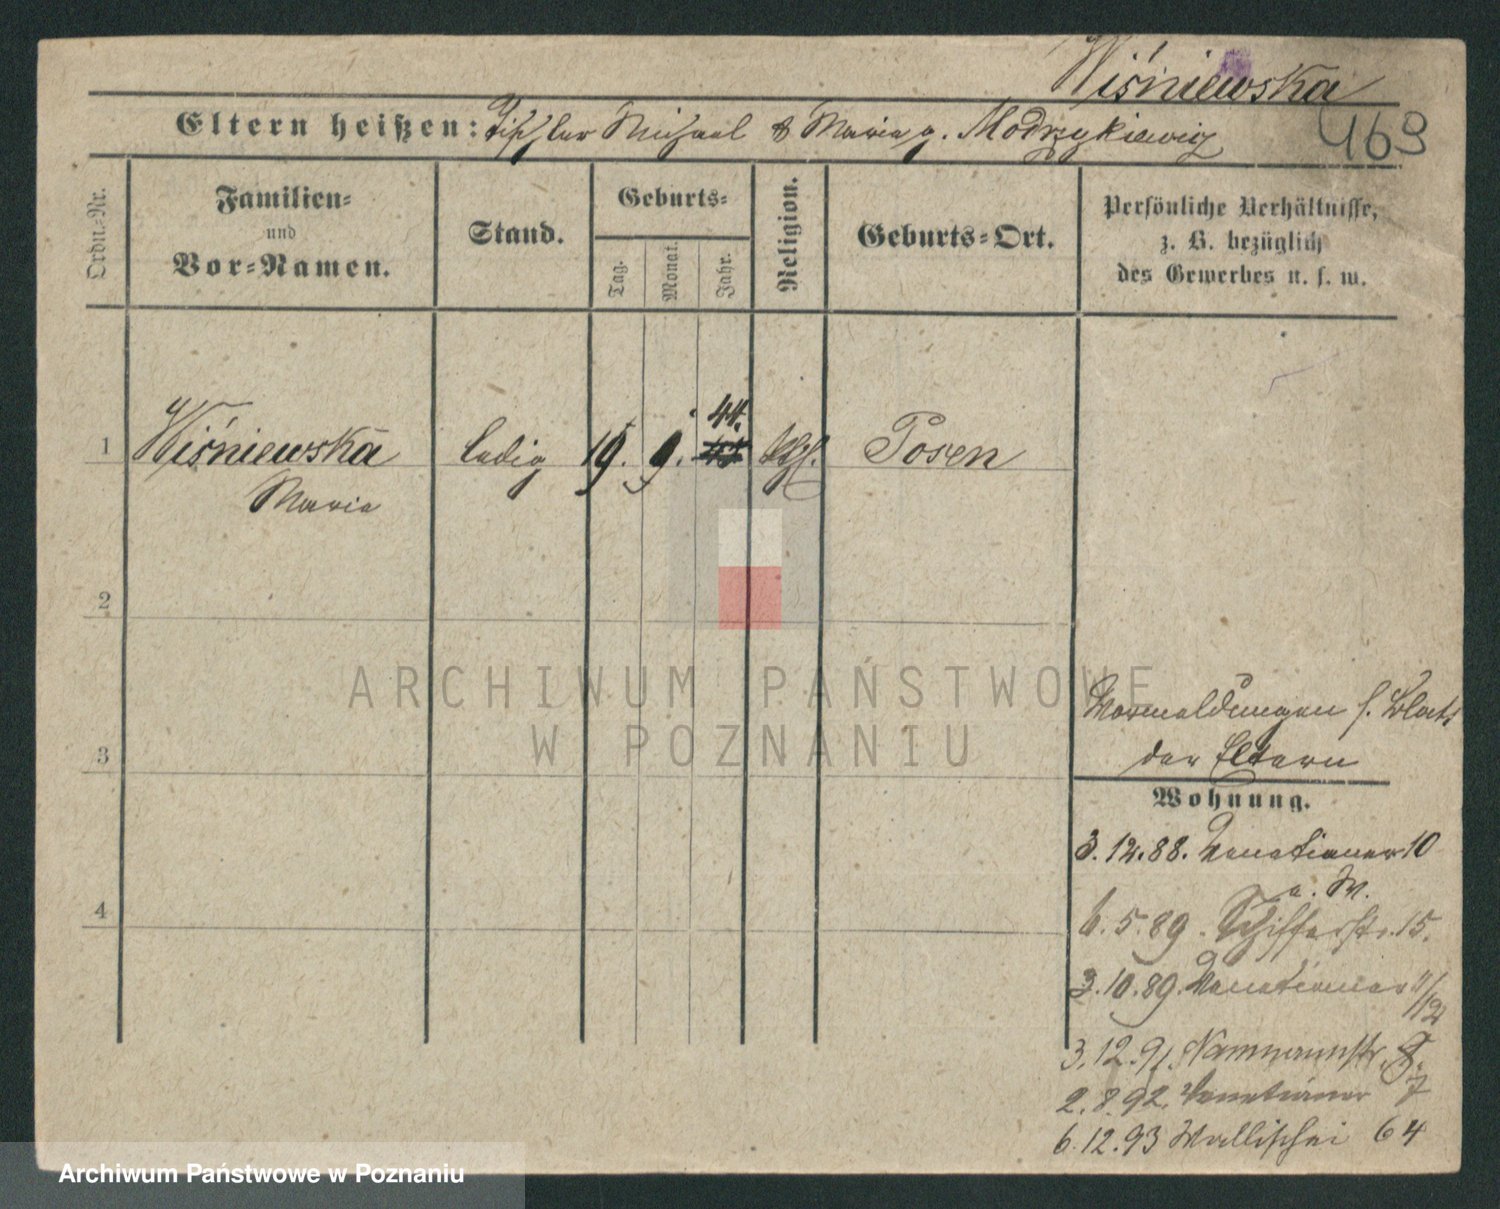 Wiśniewska
Eltern heißen: Tischler Michael & Maria g. Modrzykiewicz
469
Ordn.-Nr.
Familien- und Vor-Namen.
Stand.
Geburts-
Tag.
Monat.
Jahr.
Religion.
Geburts-Ort.
Persönliche Verhältnisse,
z. B. bezüglich
des Gewerbes u. s. w.
44.
1 Wiśniewska ledig 19. 9. kath. Posen
Maria
2
3
4
Vormeldungen s. Blatt
der Eltern
Wohnung.
3.12.88. Venetianer 10
a. W.
6.5.89. Schifferstr. 15.
3.10.89. Venetianer 11/12
3.12.91. Naumannstr.
2.8.92. Venetianer 7
6.12.93 Wallischei 64
ARCHIWUM PAŃSTWOWE
W POZNANIU
Archiwum Państwowe w Poznaniu